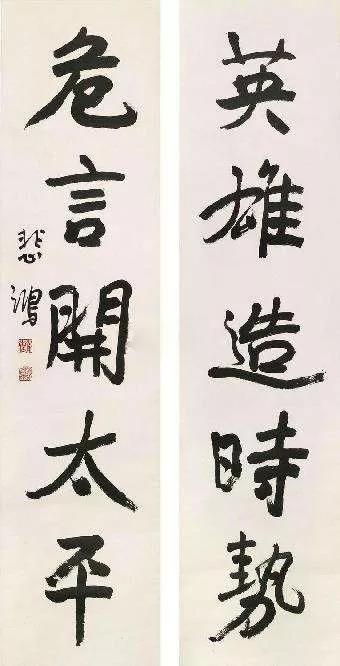 英雄造時勢
危言開太平
悲鴻